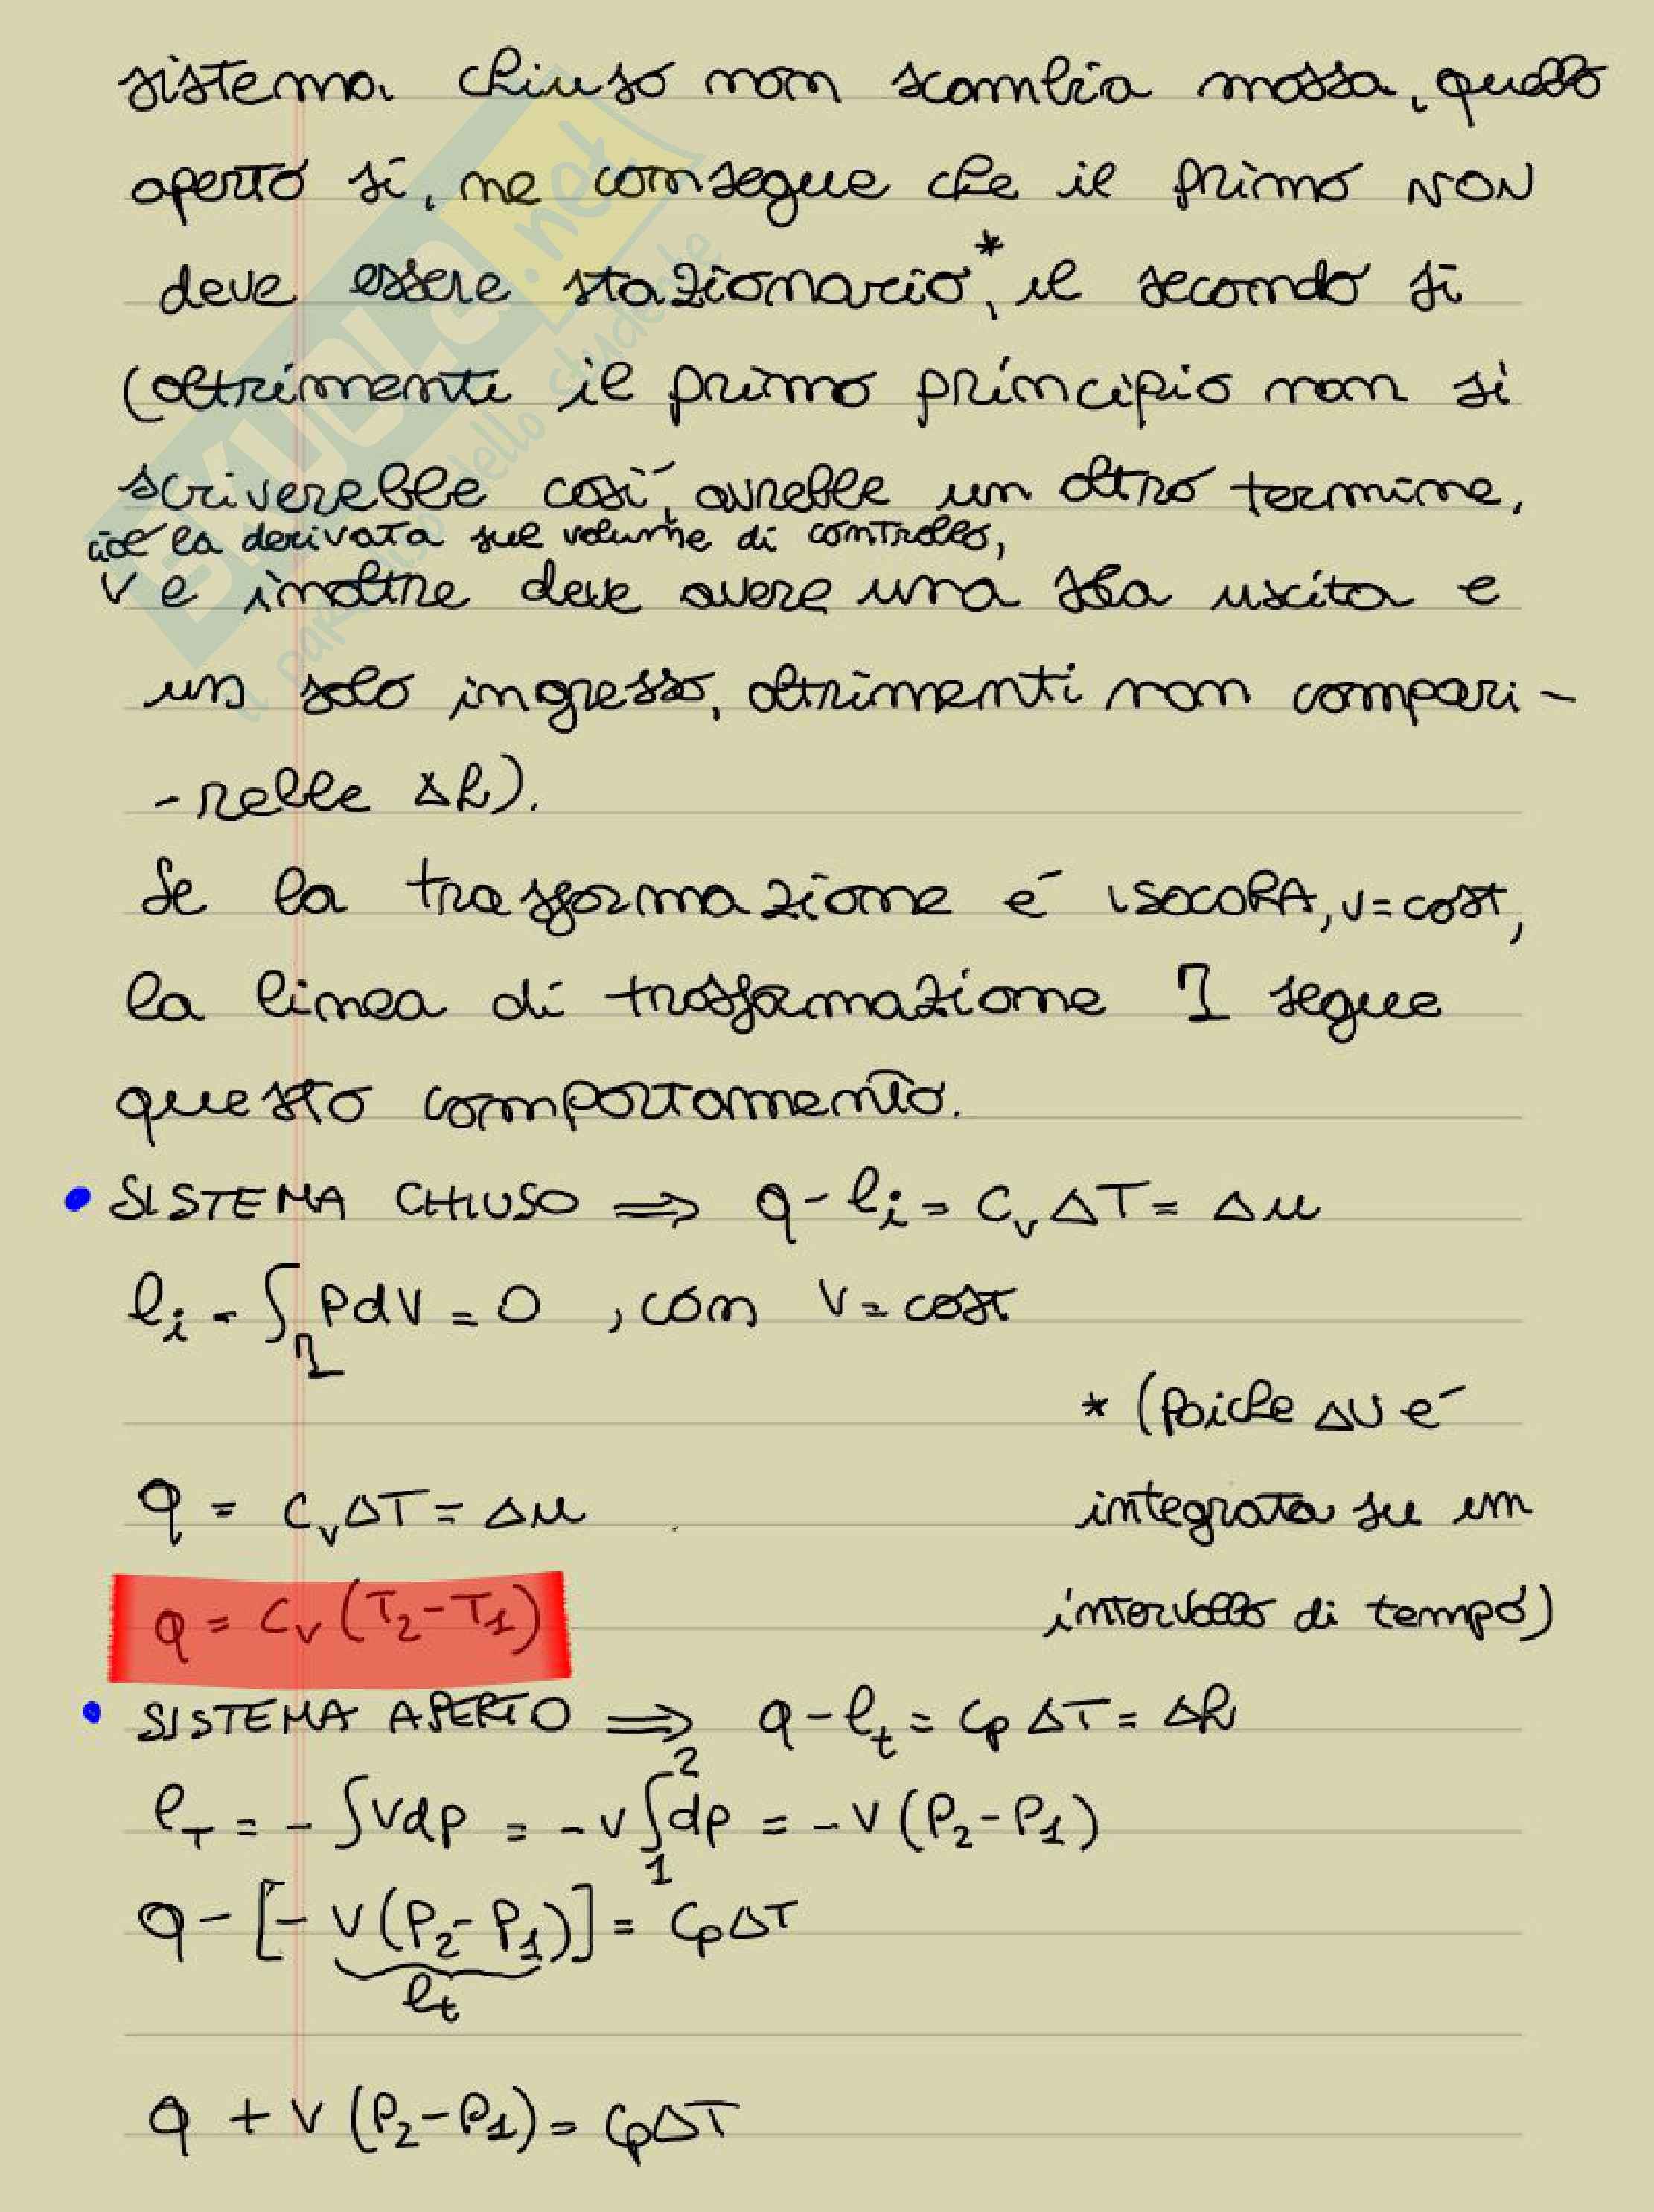 sistema chiuso non scambia massa, quello
aperto si, ne consegue che il primo NON
deve essere stazionario*, il secondo si
(altrimenti il primo principio non si
scriverebbe così, avrebbe un altro termine,
cioè la derivata sul volume di controllo,
v e inoltre deve avere una sola uscita e
un solo ingresso, altrimenti non compari-
-rebbe Δh).
Se la trasformazione é ISOCORA, v=cost,
la linea di trasformazione η segue
questo comportamento.
• SISTEMA CHIUSO ⟹ q - l_i = C_v ΔT = Δu
l_i = ∫_η P dV = 0 , con V = cost
* (Poiche ΔU é
q = C_v ΔT = Δu
integrata su un
q = C_v (T_2 - T_1)
intervallo di tempo)
• SISTEMA APERTO ⟹ q - l_t = C_p ΔT = Δh
l_T = - ∫ V dp = - v ∫_1^2 dp = - V (P_2 - P_1)
q - [- V (P_2 - P_1)] = C_p ΔT
l_t
q + V (P_2 - P_1) = C_p ΔT
SKUOLA.net
il paradiso dello studente